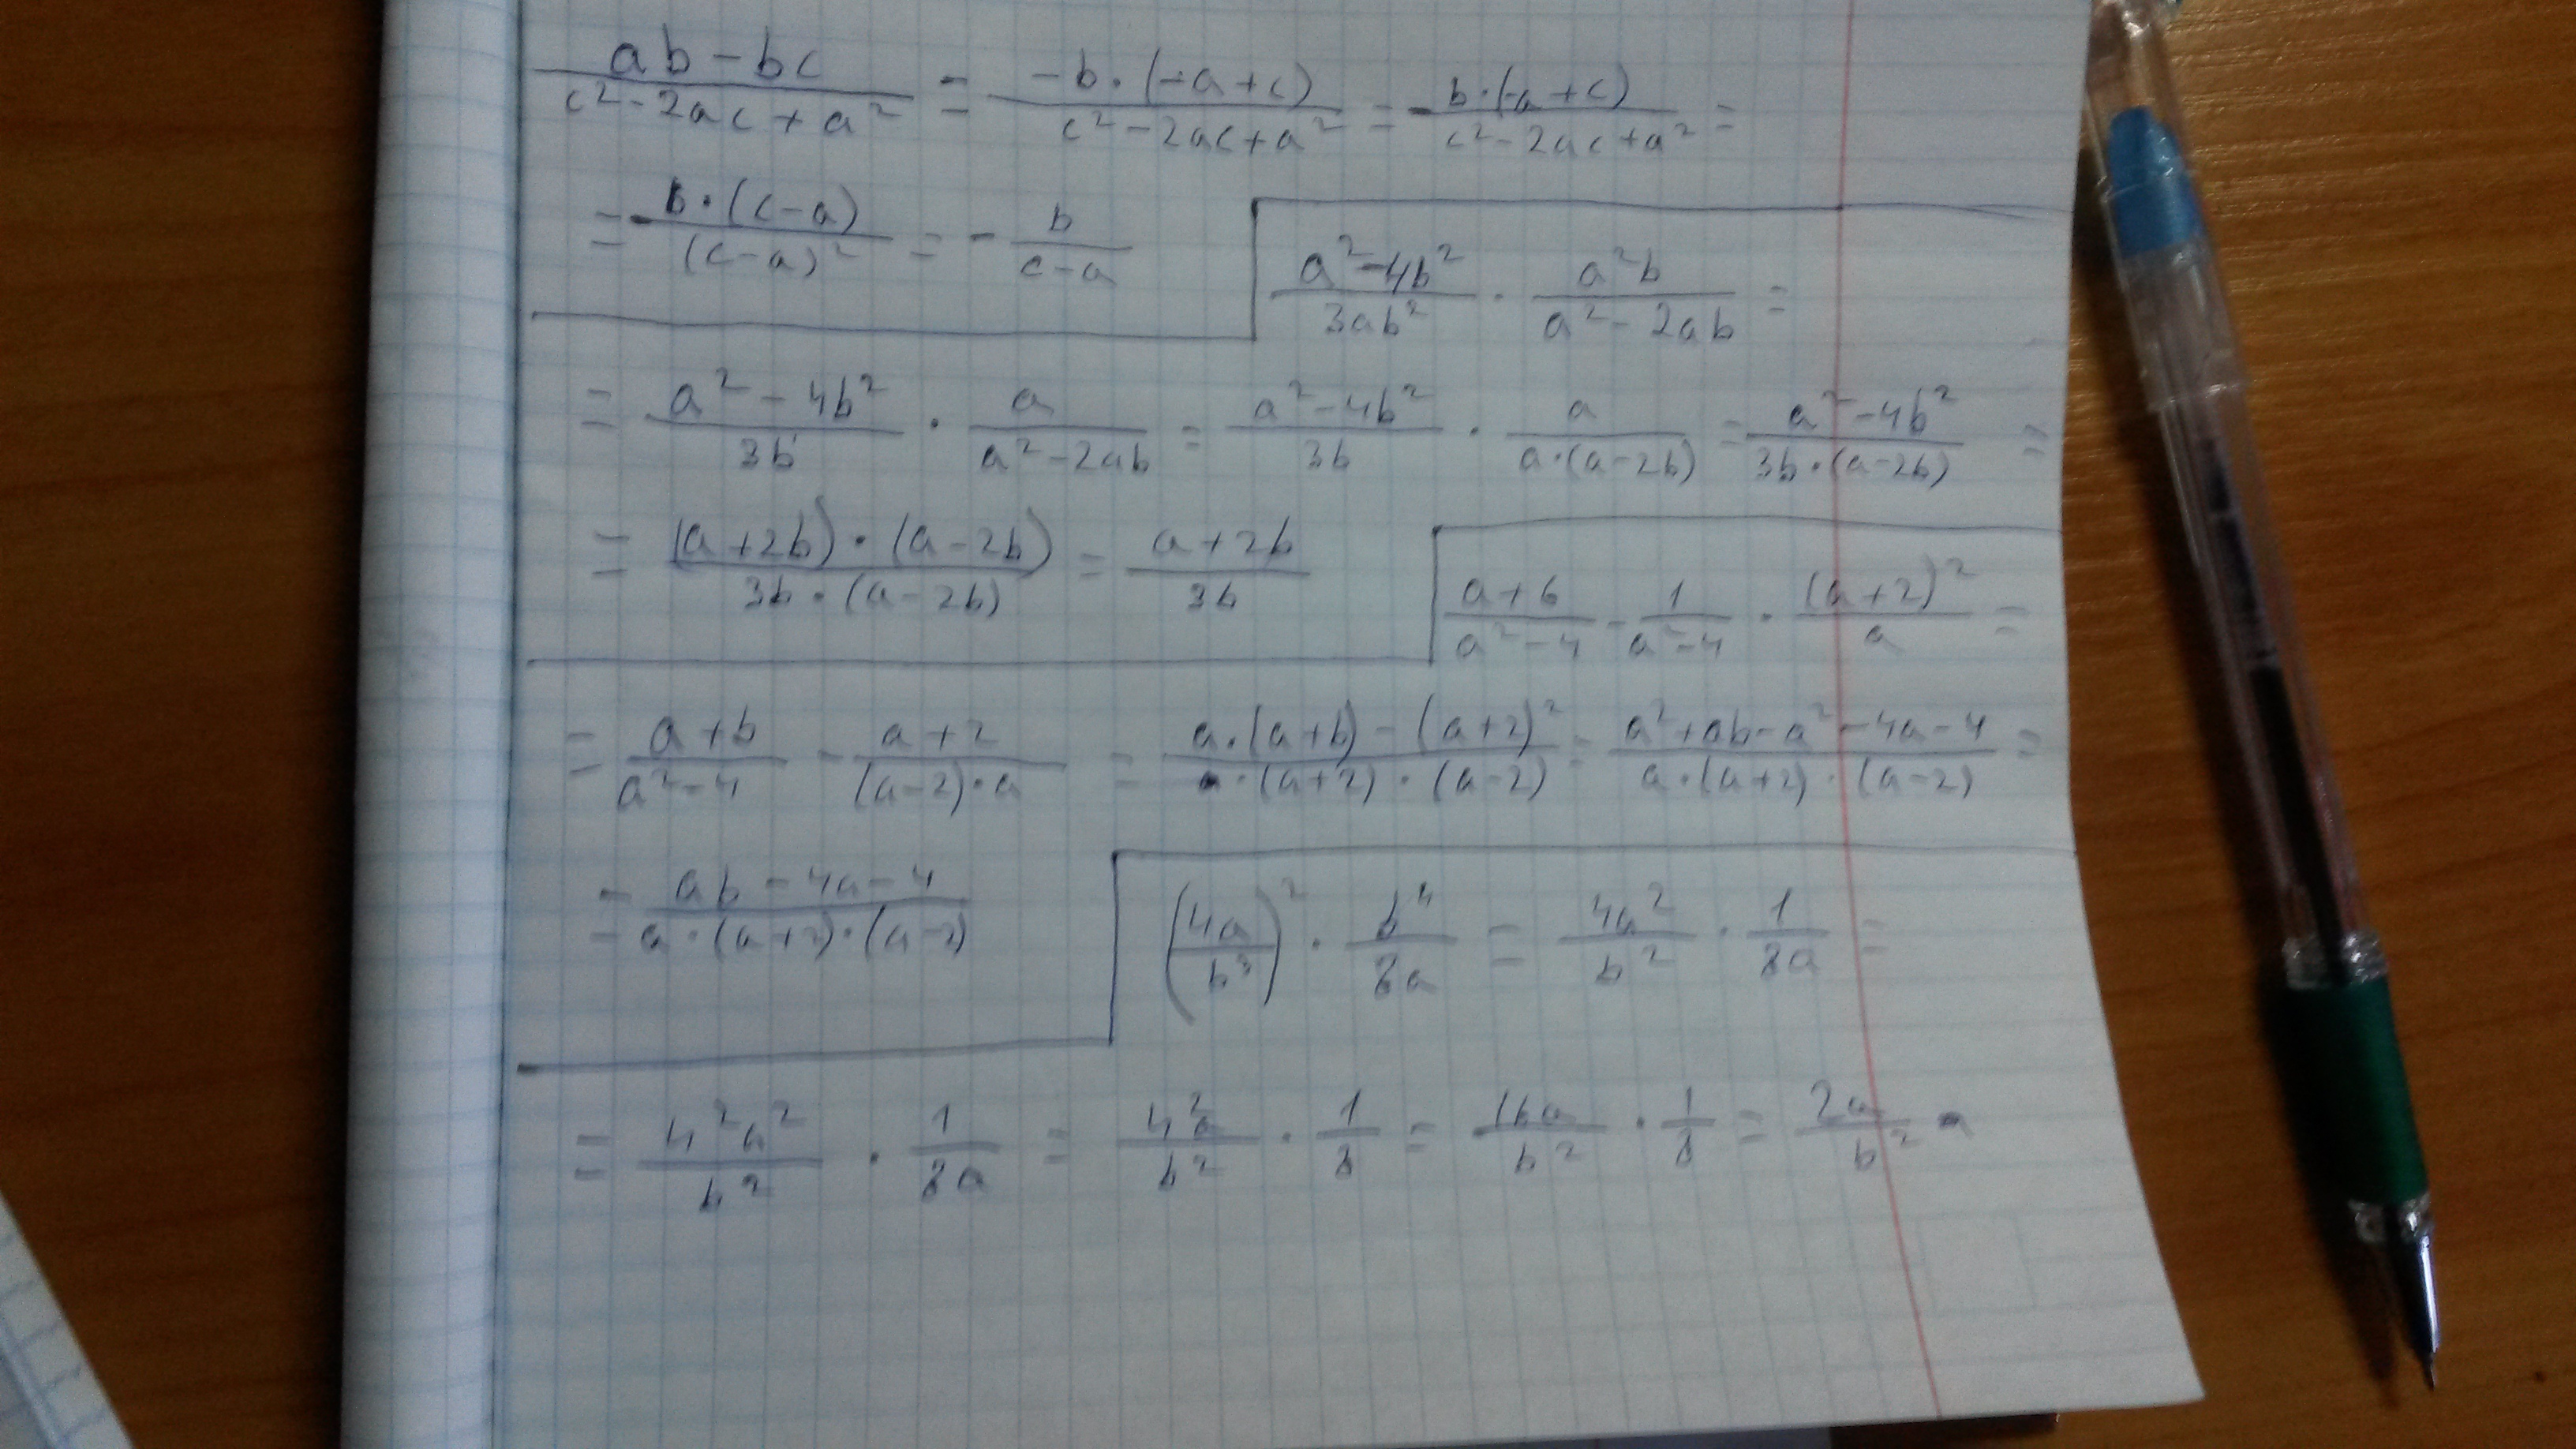 (ab - bc)/(c² - 2ac + a²) = (-b · (-a + c))/(c² - 2ac + a²) = - (b · (-a + c))/(c² - 2ac + a²) =
= - (b · (c - a))/((c - a)²) = - b/(c - a)
(a² - 4b²)/(3ab²) · (a²b)/(a² - 2ab) =
= (a² - 4b²)/(3b) · a/(a² - 2ab) = (a² - 4b²)/(3b) · a/(a · (a - 2b)) = (a² - 4b²)/(3b · (a - 2b)) =
= ((a + 2b) · (a - 2b))/(3b · (a - 2b)) = (a + 2b)/(3b)
(a + 6)/(a² - 4) - 1/(a² - 4) · (a + 2)²/a =
= (a + b)/(a² - 4) - (a + 2)/((a - 2) · a) = (a · (a + b) - (a + 2)²)/(a · (a + 2) · (a - 2)) = (a² + ab - a² - 4a - 4)/(a · (a + 2) · (a - 2)) =
= (ab - 4a - 4)/(a · (a + 2) · (a - 2))
(4a/b³)² · b⁴/(8a) = 4a²/b² · 1/(8a) =
= 4²a²/b² · 1/(8a) = 4²a/b² · 1/8 = 16a/b² · 1/8 = 2a/b²